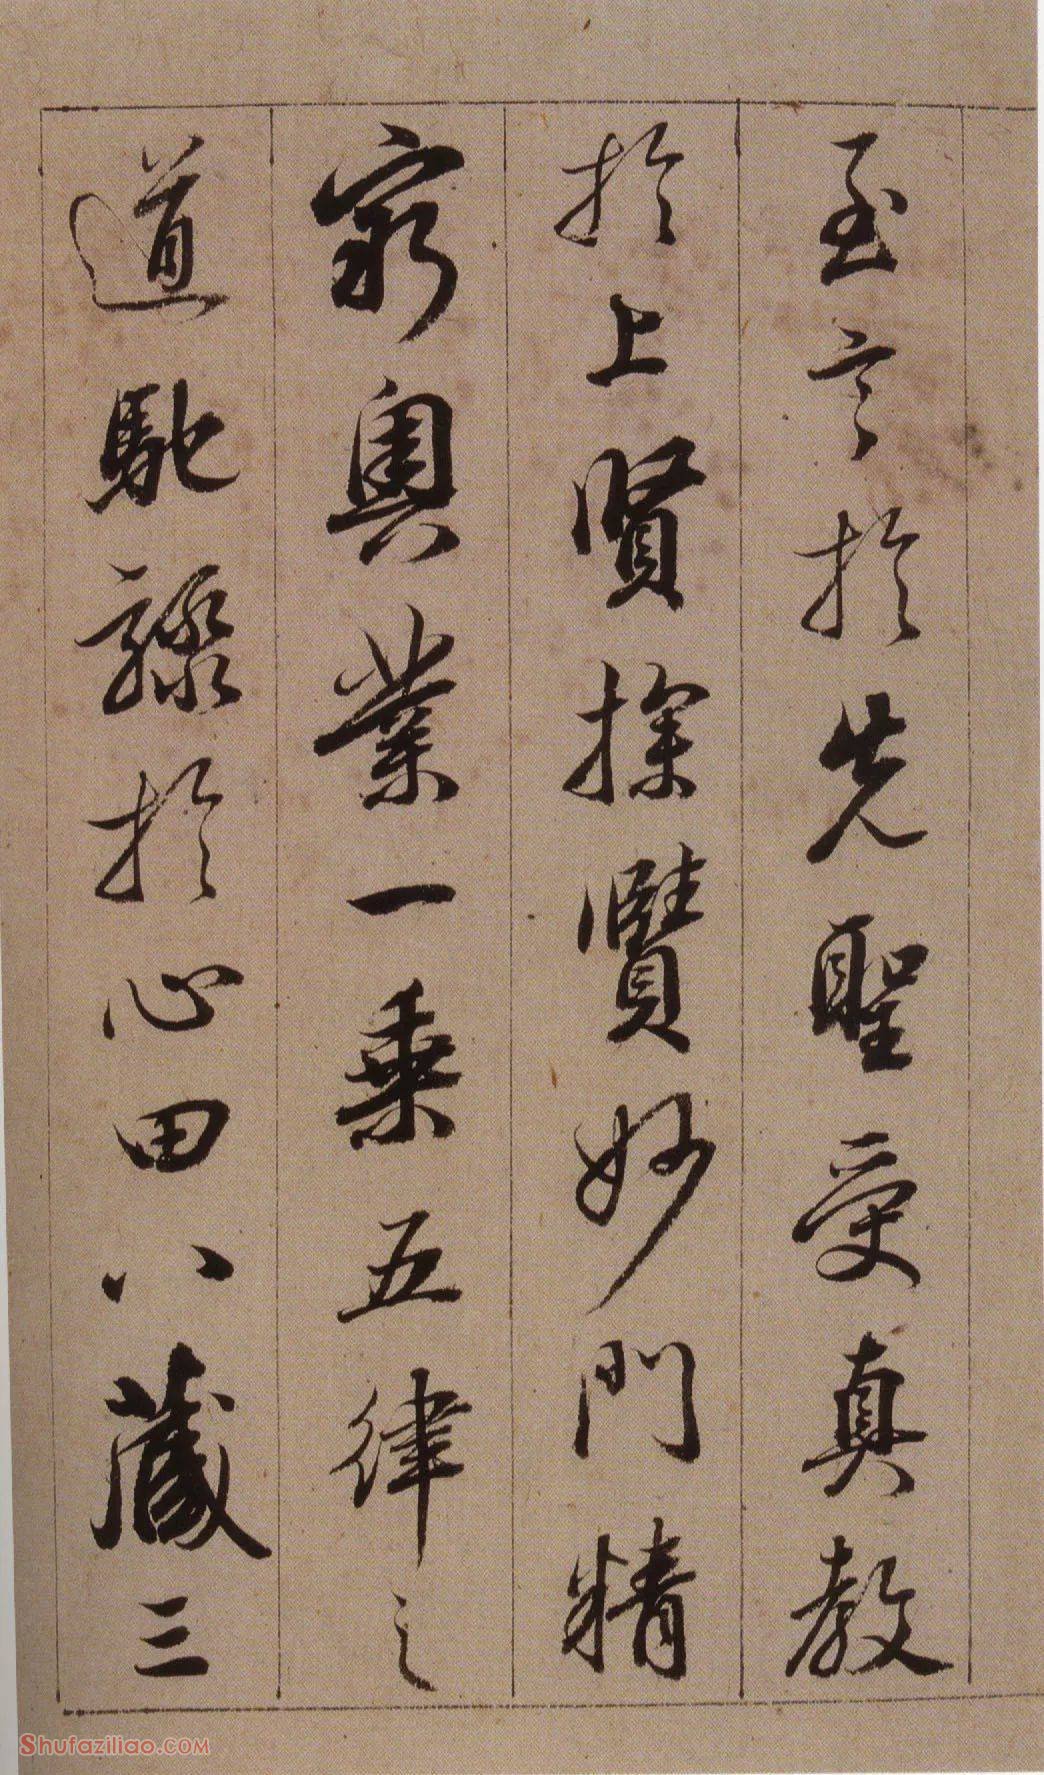 至言於先聖受真教
於上賢探賾妙門精
窮奧業一乘五律之
道馳驟於心田八藏三
Shufaziliao.COM